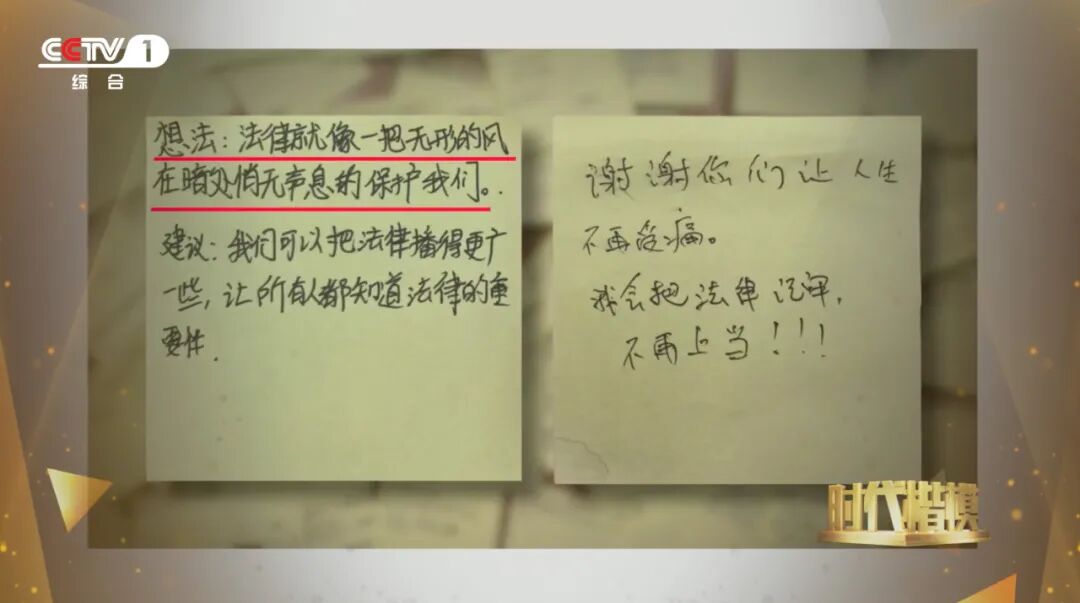 CCTV 1
综合
想法：法律就像一把无形的风
在暗处悄无声息的保护我们。
建议：我们可以把法律播得更广
一些，让所有人都知道法律的重
要性．
谢谢你们让人生
不再受痛。
我会把法律记牢，
不再上当！！！
时代楷模